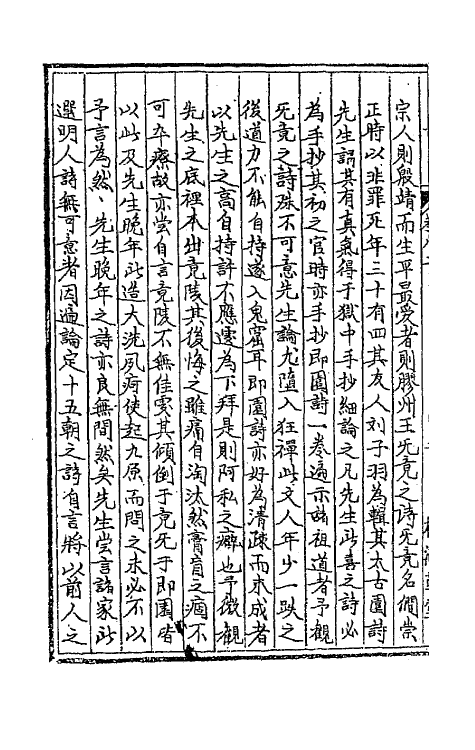 宗人則殷靖而生平最愛者則膠州王旡竟之詩旡竟名僩崇
正時以非罪死年三十有四其友人刘子羽為輯其太古園詩
先生謂其有真氣得于獄中手抄細論之凡先生所喜之詩必
為手抄其初之官時亦手抄即園詩一卷遍示諸祖道者予觀
旡竟之詩殊不可意先生論尤墮入狂禪此文人年少一跌之
後道力不能自持遂入鬼窟耳即園詩亦好為清疎而未成者
以先生之高自持許不應遽為下拜是則阿私之癖也予微觀
先生之底裡本出竟陵其後悔之雖痛自淘汰然膏肓之痼不
可卒療故亦嘗自言竟陵不無佳處其傾倒于竟旡于即園皆
以此及先生晚年所造大洗夙疴使起九原而問之未必不以
予言為然、先生晚年之詩亦良無間然矣先生嘗言諸家所
選明人詩無可意者因遍論定十五朝之詩自言將以前人之